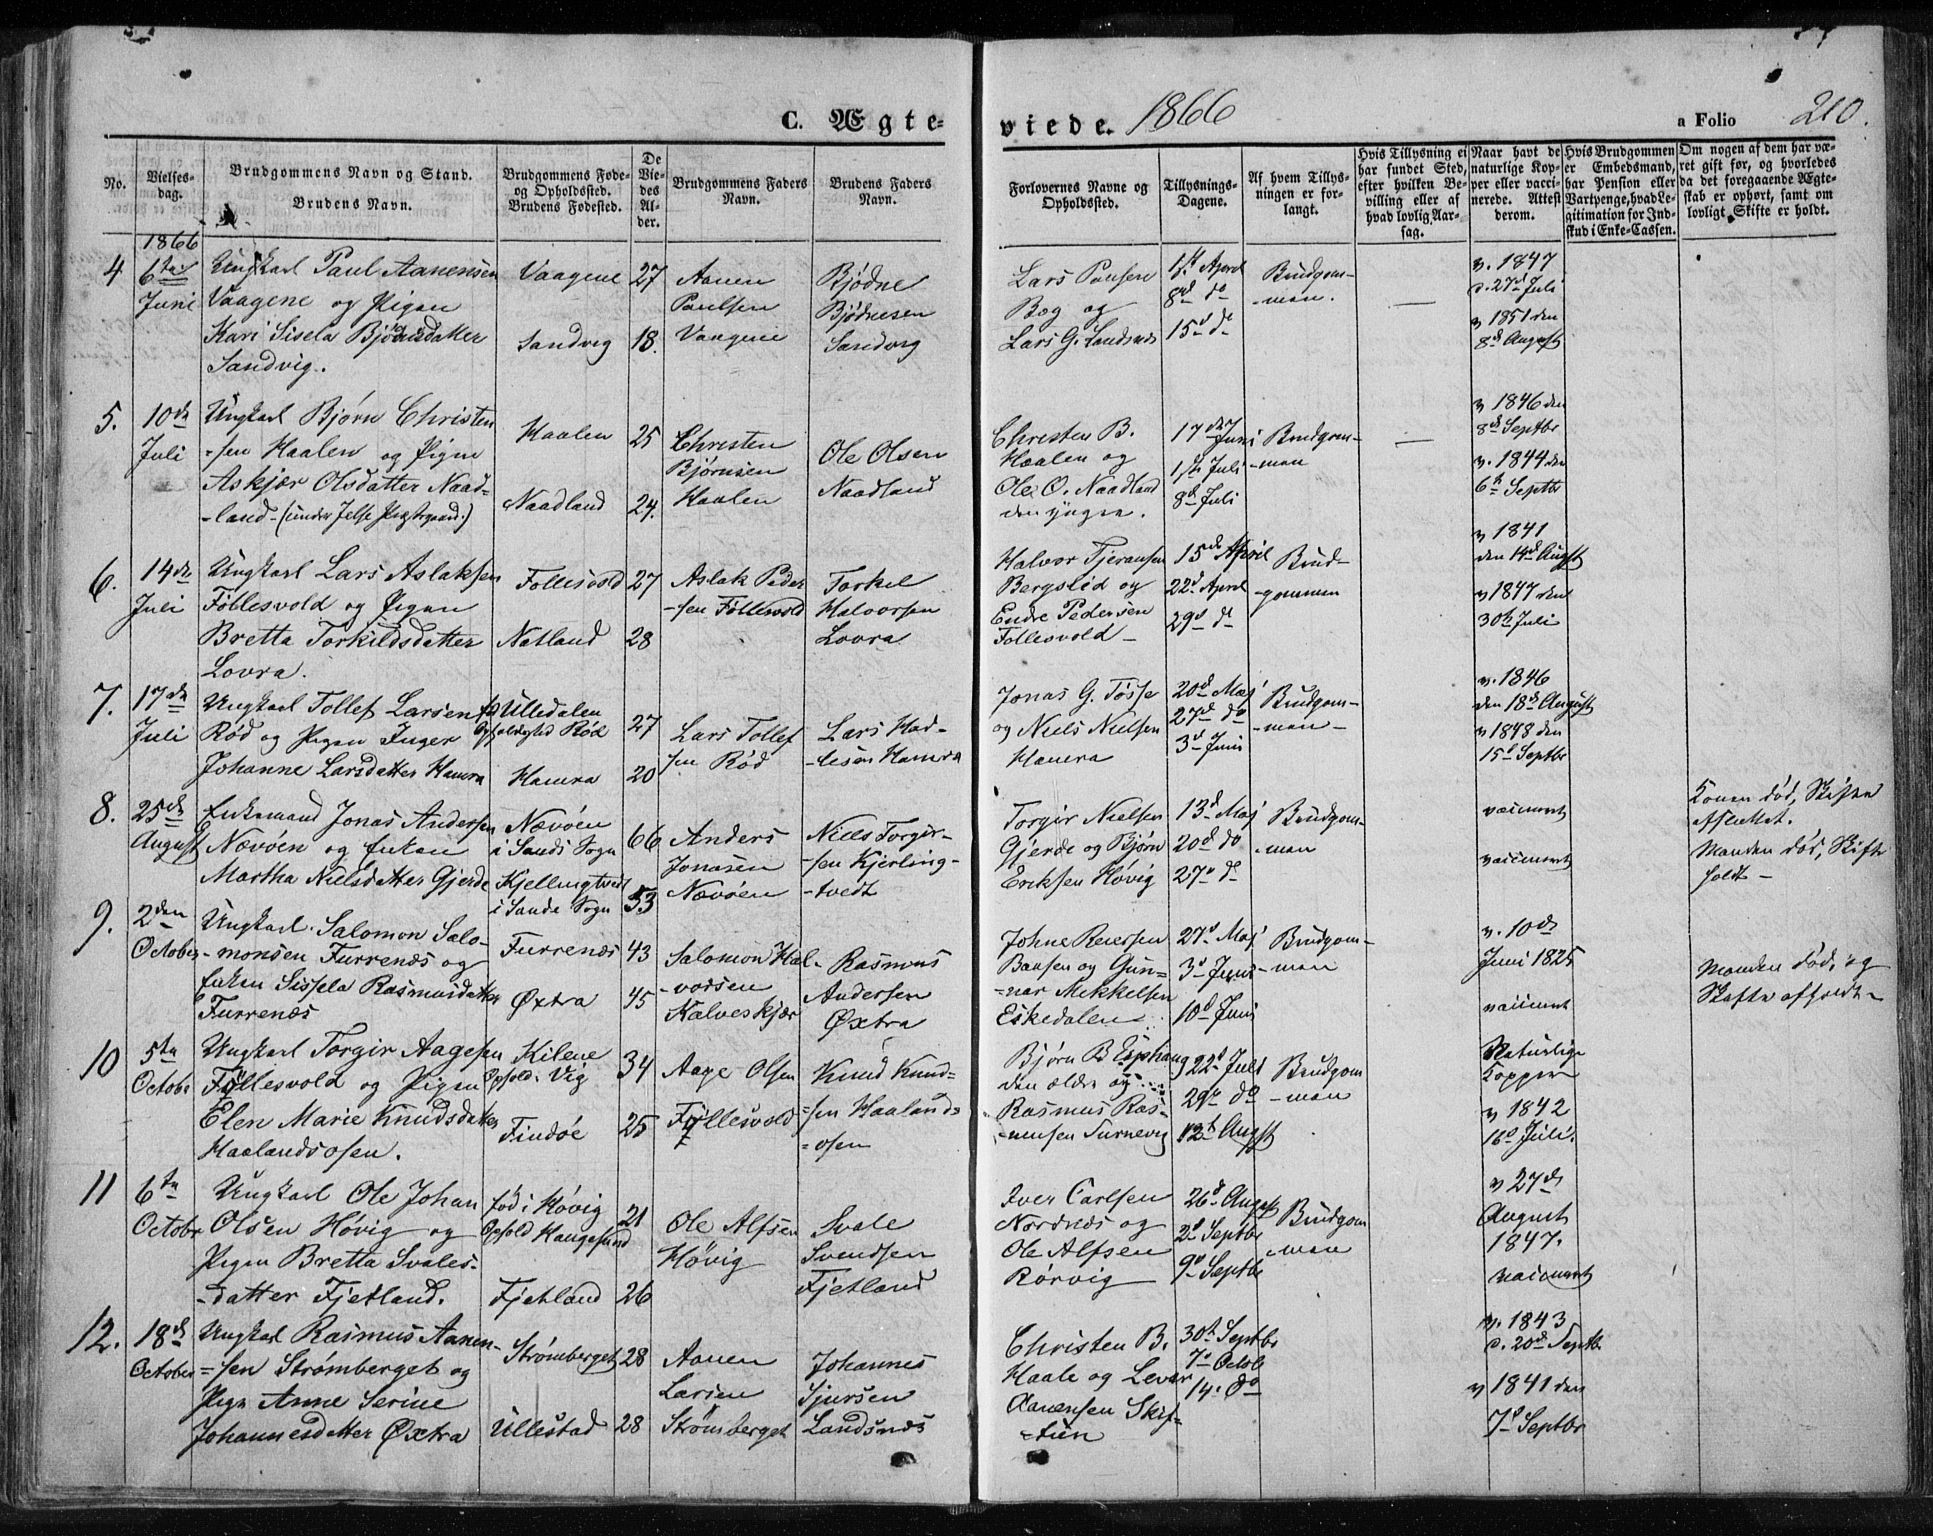 C. Ægte-
viede. 1866
a Folio 210.
No.
Vielses-
dag.
Brudgommens Navn og Stand.
Brudens Navn.
Brudgommens Føde-
og Opholdssted.
Brudens Fødested.
De
Vie-
des
Al-
der.
Brudgommens Faders
Navn.
Brudens Faders
Navn.
Forlovernes Navne og
Opholdssted.
Tillysnings-
Dagene.
Af hvem Tillys-
ningen er for-
langt.
Hvis Tillysning ei
har fundet Sted,
efter hvilken Be-
villing eller af
hvad lovlig Aar-
sag.
Naar havt de
naturlige Kop-
per eller vacci-
nerede. Attest
derom.
Hvis Brudgommen
er Embedsmand,
har Pension eller
Vartpenge, hvad Le-
gitimation for Ind-
skud i Enke-Cassen.
Om nogen af dem har væ-
ret gift før, og hvorledes
da det foregaaende Ægte-
skab er ophørt, samt om
lovligt Skifte er holdt.
1866
4
6te
Juni
Ungkarl Paul Aanensen
Vaagene og Pigen
Kari Sisela Bjødnsdatter
Sandvig.
Vaagene
Sandvig
27
18.
Aanen
Paulsen
Vaagene
Bjødne
Bjødnesen
Sandvig
Lars Paulsen
Bog og
Lars G. Landsnæs
1st April
8de do
15d do
Brudgom-
-men.
—
v. 1847
d. 27d Juli
v 1851 den
8d August
5.
10de
Juli
Ungkarl Bjørn Christen
=sen Haalen og Pigen
Askjær Olsdatter Naad-
-land - (under Jelse Præstegaard.)
Haalen
Naadland
25
24.
Christen
Bjørnsen
Haalen
Ole Olsen
Naadland
Christen B.
Haalen og
Ole O. Naadland
den yngre.
17de Juni
1ste Juli
8d Juli
Brudgom-
-men
—
v 1846 den
8de Septbr
v. 1844 den
6te Septbr
6.
14de
Juli
Ungkarl Lars Aslaksen
Føllesvold og Pigen
Bretta Torkildsdatter
Lovra.
Follesvold
Natland
27
28
Aslak Peder
-sen Føllesvold
Torkel
Halvorsen
Lovra
Halvor Tjeransen
Bergslid og
Endre Pedersen
Follesvold -
15de April
22d April
29d do
Brud-
-gommen
v 1841
den 14d Augst
v 1847 den
30te Juli
7.
17de
Juli
Ungkarl Tollef Larsen
Rød og Pigen Inger
Johanne Larsdatter Hamra
fø Ulledalen
Opholdssted Rød
Hamra
27
20
Lars Tollef
sen Rød
Lars Had-
-lesen Hamra
Jonas G. Tøsse
og Niels Nielsen
Hamra
20d Maj
27d do
3d Juni
Brudgom-
-men-
v. 1846
den 18d August
v 1848 den
15d Septbr
8.
25de
August
Enkemand Jonas Andersen
Nævøen og Enken
Martha Nielsdatter Gjerde
Nævøen
i Sands Sogn
Kjellingtvedt
i Sands Sogn
66
53
Anders
Jonasen
Nævøen
Niels Torgir-
-sen Kjerling-
-tvedt
Torgir Nielsen
Gjerde og Bjørn
Eriksen Høvig
13d Maj
20d do
27d do
Brudgom-
-men
vaccineret
vaccineret
Konen død, Skifte
afsluttet.
Manden død, Skifte
holdt -
9.
2den
October
Ungkarl. Salomon Salo-
-monsen Furrenæs og
Enken Sissela Rasmusdatter
Furrenæs
Furrenæs
Øxtra
43
45
Salomon Hal-
-vorsen
Kalveskjær
Rasmus
Andersen
Øxtra
Johne Reiersen
Bausen og Gun-
-nar Mikkelsen
Eskedalen
27d Maj
3d Juni
10d Juni
Brudgom-
-men
v. 10de
Juni 1825
vaccineret
Manden død, og
Skifte afholdt -
10
5te
Octobr
Ungkarl Torgir Aagesen
Føllesvold og Pigen
Elen Marie Knudsdatter
Haalandsosen.
Kilene
Ophold. Vig
Findøe
34
25
Aage Olsen
Føllesvold
Knud Knud-
=sen Haalands
=osen
Bjørn B Esphaug
den ældre og
Rasmus Ras-
-musen Surnevig
22d Juli
29de do
12te Augst
Brudgom
-men
Naturlige
Kopper
v 1842
16d Juli.
11
6te
Octobr
Ungkarl Ole Johan
Olsen Høvig og
Pigen Bretta Svales-
-datter Fjetland.
fød i Høvig
Ophold Haugesund
Fjetland
21
26
Ole Alfsen
Høvig
Svale
Svendsen
Fjetland
Iver Carlsen
Nordnæs og
Ole Alfsen
Rørvig
26d August
2d Septbr
9d Septbr
Brudgom
-men
v 27de
August
1847.
vaccineret
12.
18d
October
Ungkarl Rasmus Aanen-
=sen Strømberget og
Pign Anne Serine
Johannesdatter Øxtra
Strømberget
Ullestad
28
28
Aanen
Larsen
Strømberget
Johannes
Sjursen
Landsnæs
Christen B.
Haale og Lever
Aanensen Skif-
-tien
30te Septbr
7d Octob
14. do
v. 1843
d. 20de Septbr
v 1841 den
7d Septbr